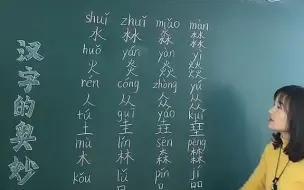 汉字的奥妙
shuǐ zhuǐ miǎo màn
水 沝 淼 㵘
huǒ yán yàn yì
火 炎 焱 燚
rén cóng zhòng
人 从 众 𠈌
tǔ guī yáo kuí
土 圭 垚 㙓
mù lín sēn pēng
木 林 森 𣛧
kǒu lǚ pǐn jí
口 吕 品 㗊